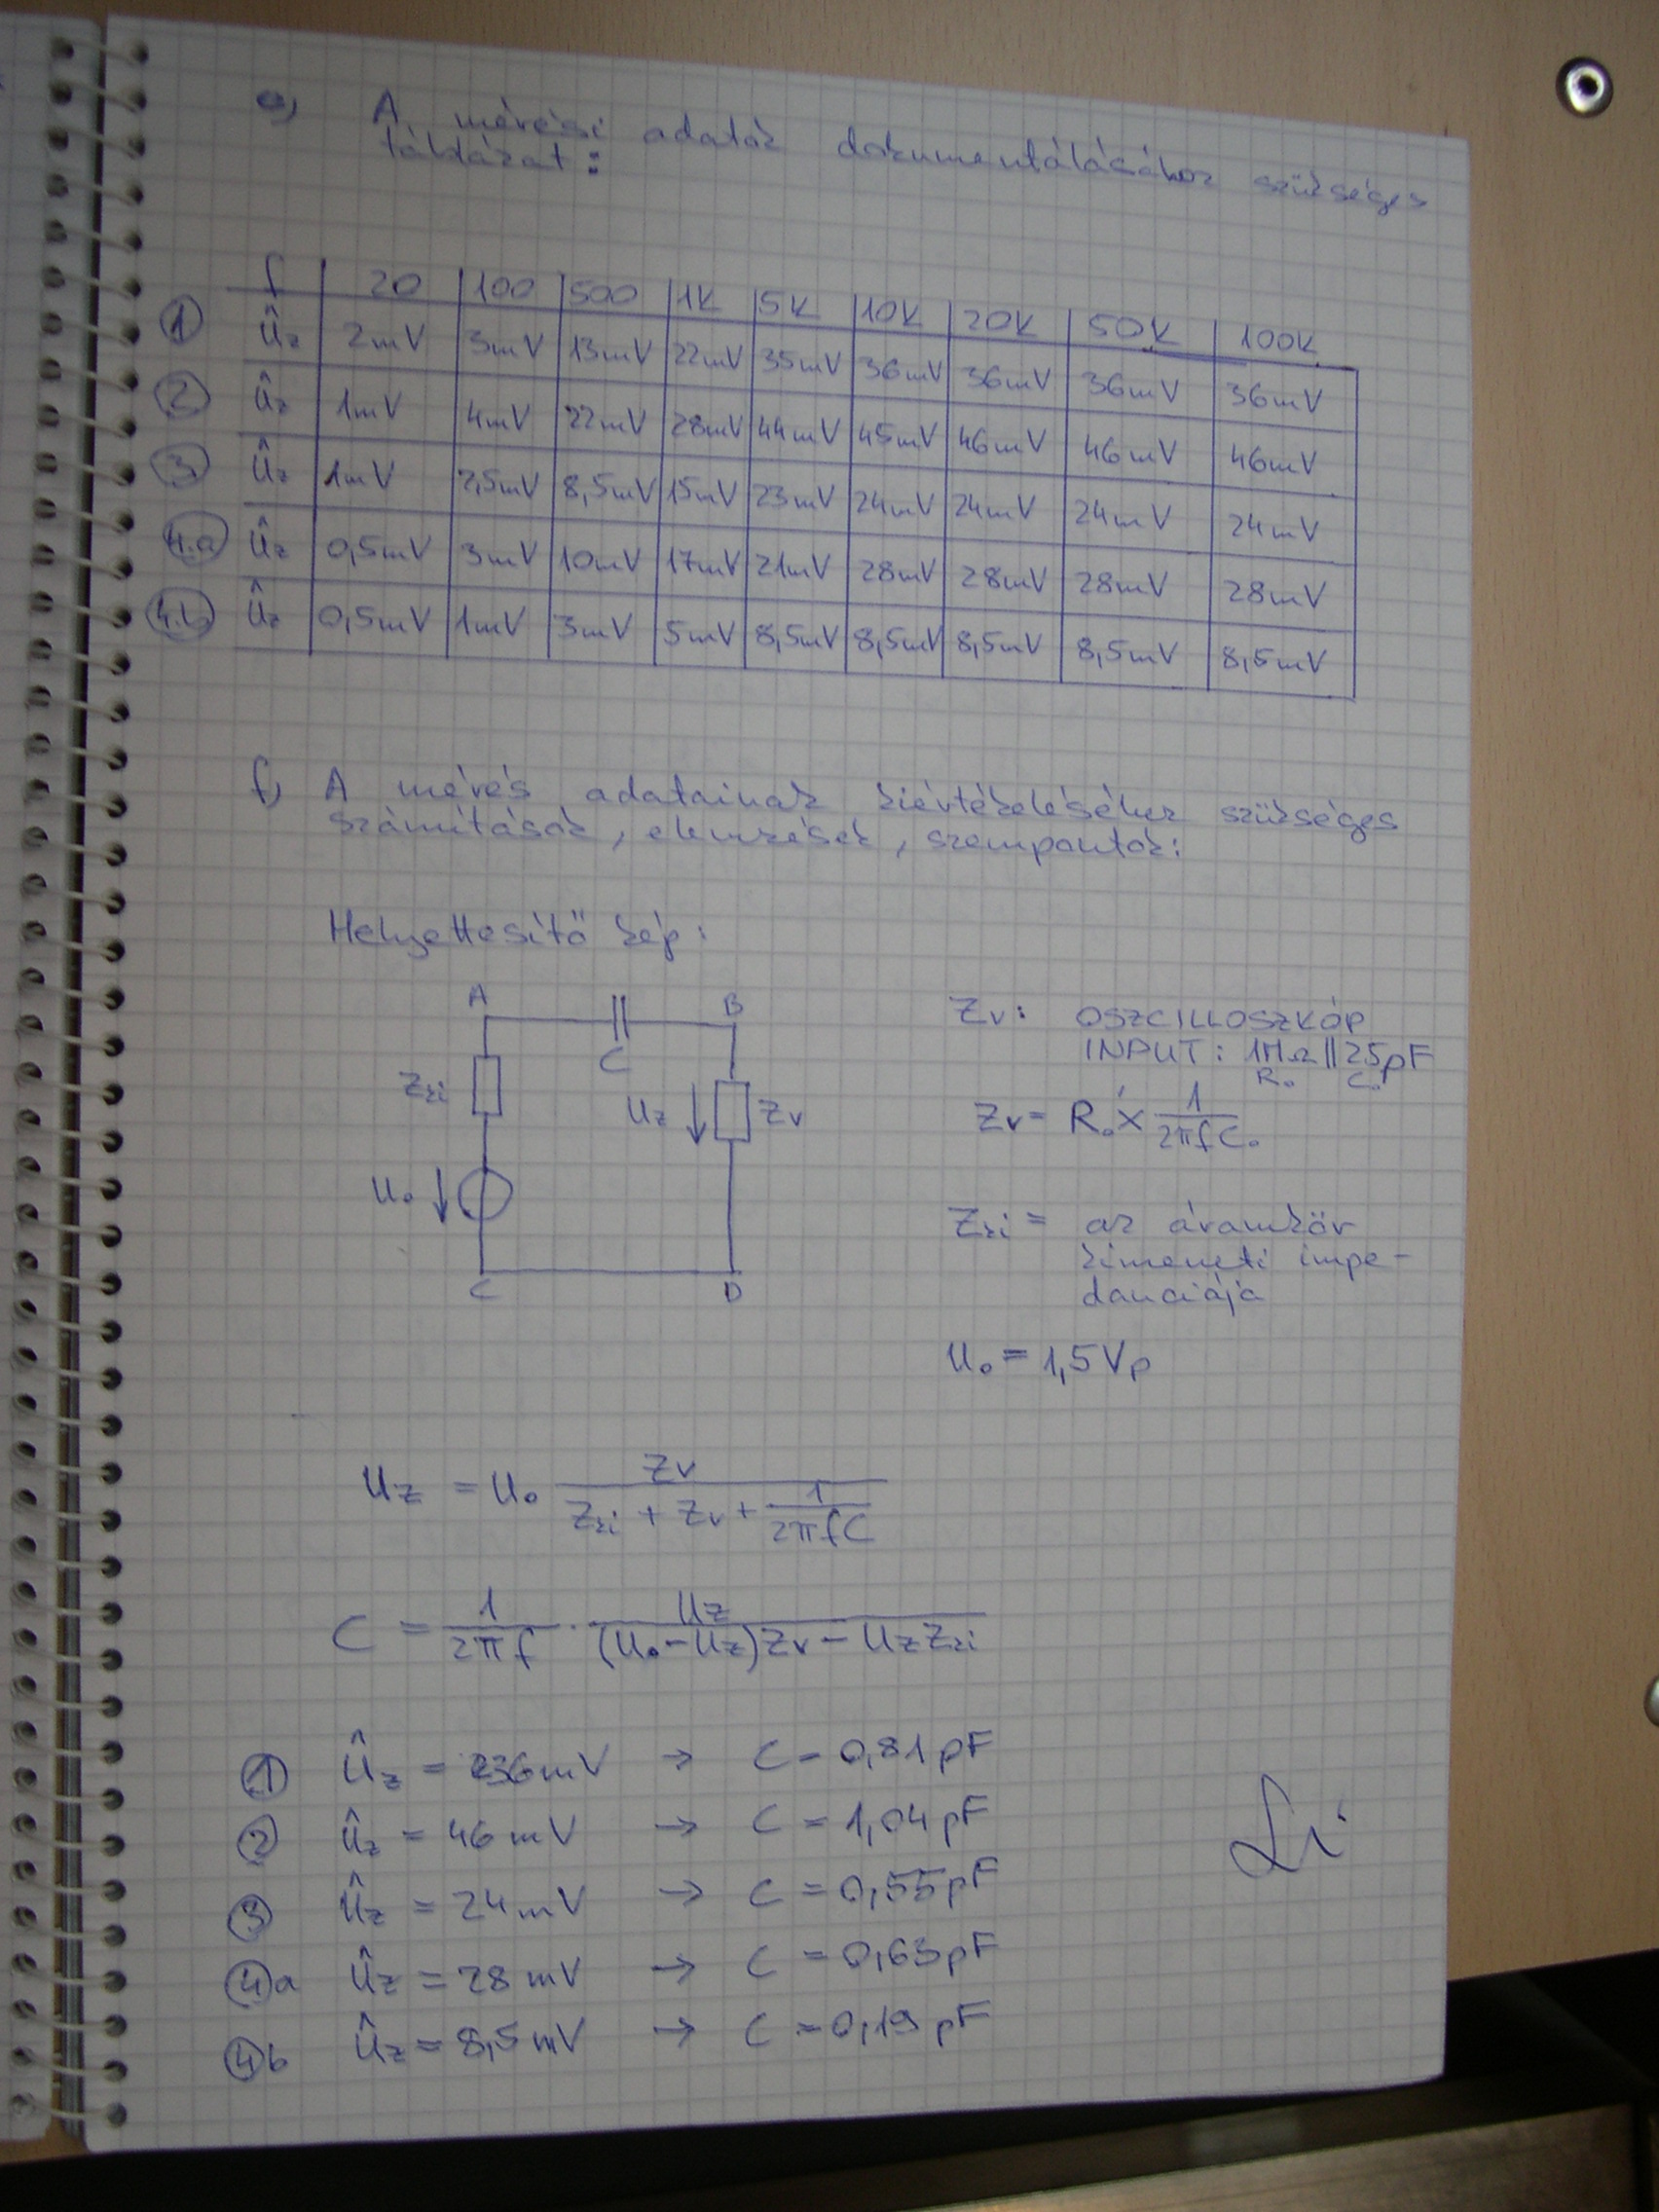 e) A mérési adatok dokumentálásához szükséges
táblázat:
f 20 100 500 1K 5K 10K 20K 50K 100K
① Ûz 2mV 3mV 13mV 22mV 35mV 36mV 36mV 36mV 36mV
② Ûz 1mV 4mV 22mV 28mV 44mV 45mV 46mV 46mV 46mV
③ Ûz 1mV 2,5mV 8,5mV 15mV 23mV 24mV 24mV 24mV 24mV
4.a Ûz 0,5mV 3mV 10mV 17mV 21mV 28mV 28mV 28mV 28mV
4.b Ûz 0,5mV 1mV 3mV 5mV 8,5mV 8,5mV 8,5mV 8,5mV 8,5mV
f) A mérés adatainak kiértékeléséhez szükséges
számítások, elemzések, szempontok:
Helyettesítő kép:
A B
C
Zki
Uz Zv
U₀
C D
Zv: OSZCILLOSZKÓP
INPUT: 1MΩ || 25pF
R₀ C₀
Zv = R₀ × 1/(2πfC₀)
Zki = az áramkör
kimeneti impe-
danciája
U₀ = 1,5Vp
Uz = U₀ Zv/(Zki + Zv + 1/(2πfC))
C = 1/(2πf) · Uz/((U₀-Uz)Zv - UzZki)
① Ûz = 36mV → C = 0,81pF
② Ûz = 46mV → C = 1,04pF
③ Ûz = 24mV → C = 0,55pF
④a Ûz = 28mV → C = 0,63pF
④b Ûz = 8,5mV → C = 0,19pF